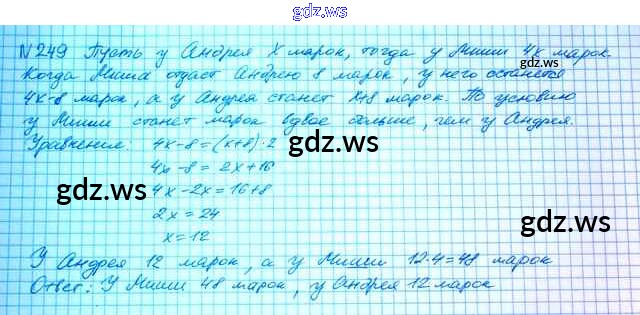 gdz.ws
№249 Пусть у Андрея х марок, тогда у Миши 4х марок.
Когда Миша отдаст Андрею 8 марок, у него останется
4х-8 марок, а у Андрея станет х+8 марок. По условию
у Миши станет марок вдвое больше, чем у Андрея.
gdz.ws
gdz.ws
Уравнение: 4х-8=(х+8)·2
4х-8=2х+16
4х-2х=16+8
gdz.ws
gdz.ws
2х=24
х=12
У Андрея 12 марок, а у Миши 12·4=48 марок
Ответ: У Миши 48 марок, у Андрея 12 марок
gdz.ws